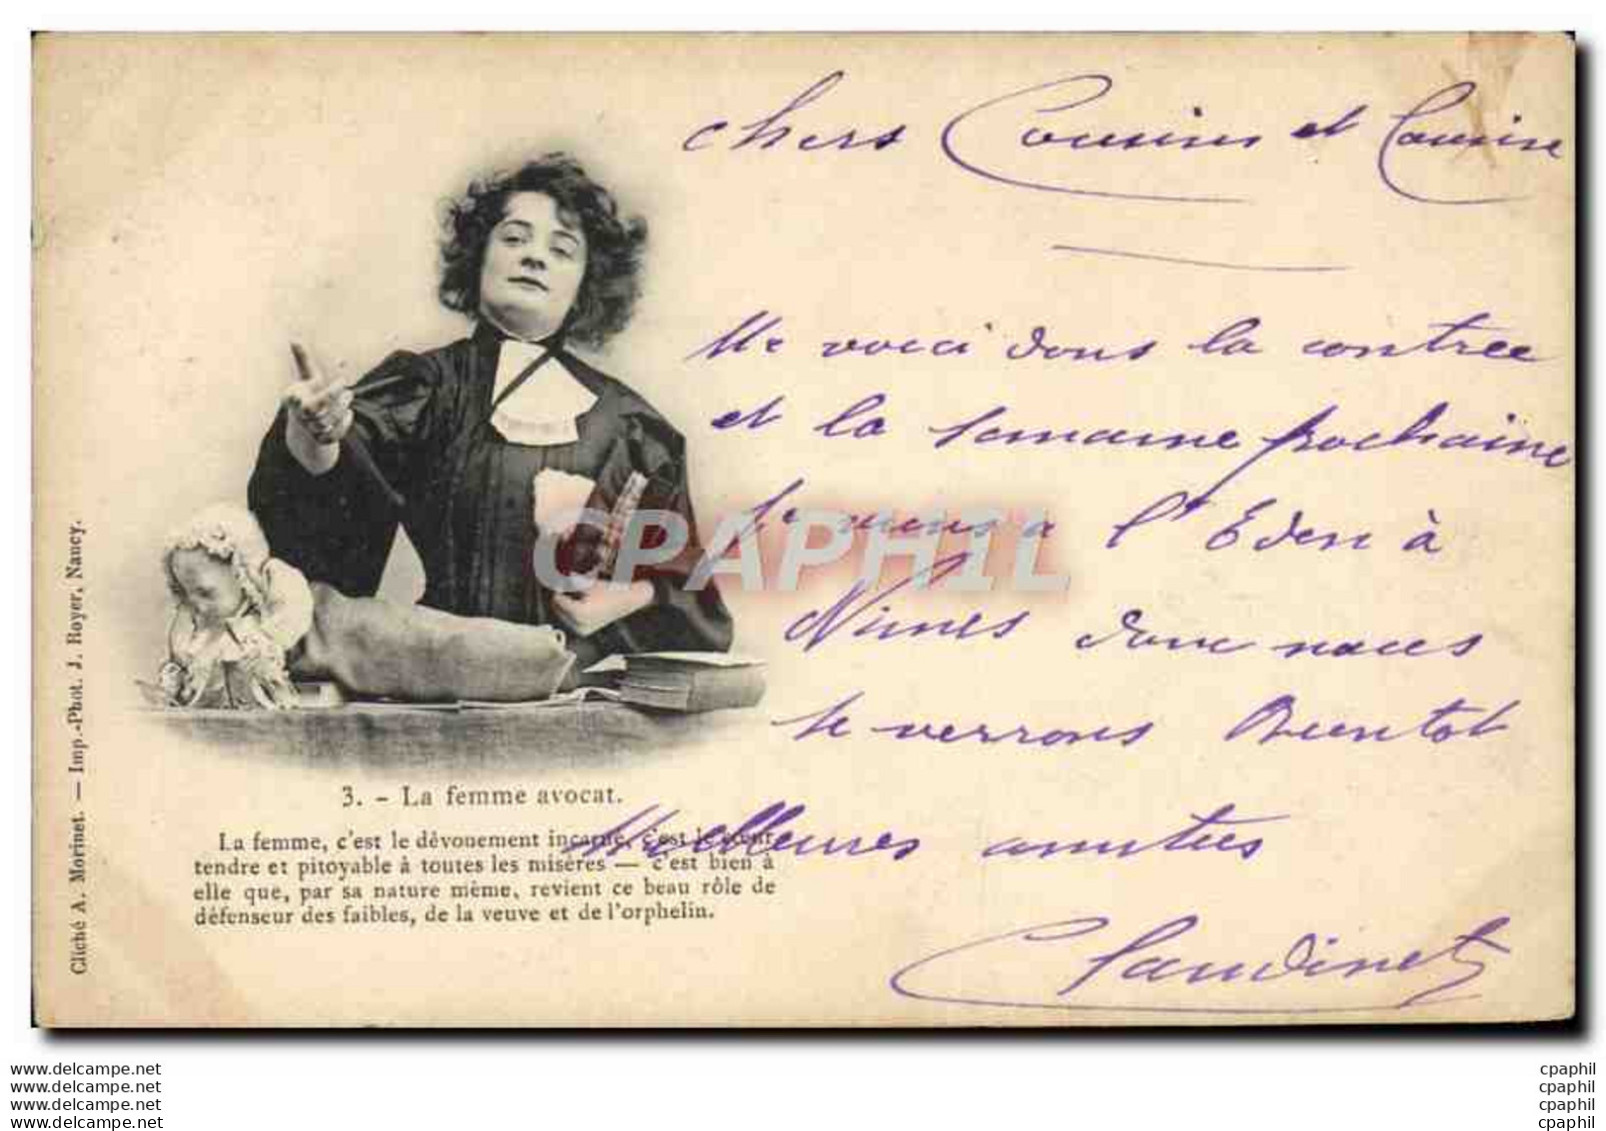 chers Cousins et Cousine
Me voici dans la contrée
et la semaine prochaine
je viens a l'Eden à
Nimes donc nous
se verrons Bientot
Meilleures amitiés
Claudinet
CPAPHIL
3. - La femme avocat.
La femme, c'est le dévouement incarné, c'est le cœur
tendre et pitoyable à toutes les misères — c'est bien à
elle que, par sa nature même, revient ce beau rôle de
défenseur des faibles, de la veuve et de l'orphelin.
Cliché A. Morinet. — Imp.-Phot. J. Royer, Nancy.
www.delcampe.net
www.delcampe.net
www.delcampe.net
www.delcampe.net
cpaphil
cpaphil
cpaphil
cpaphil